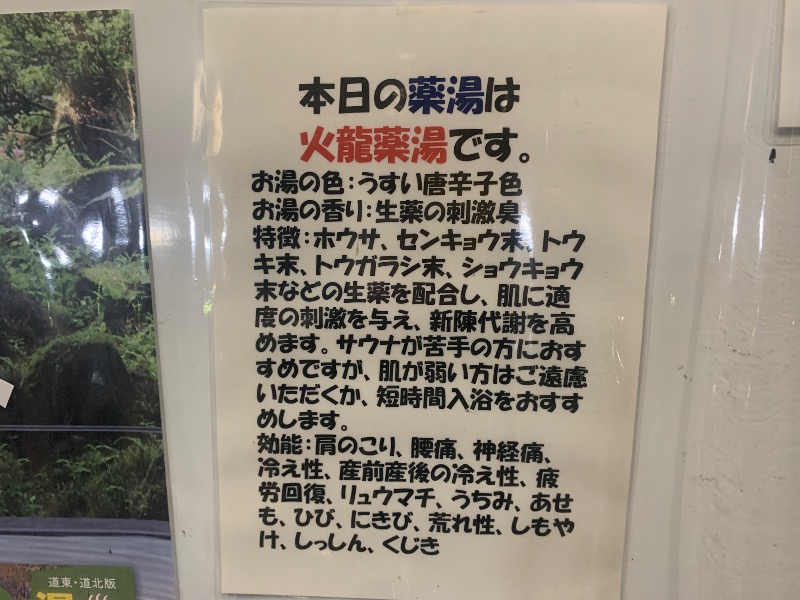 本日の薬湯は
火龍薬湯です。
お湯の色：うすい唐辛子色
お湯の香り：生薬の刺激臭
特徴：ホウサ、センキョウ末、トウ
キ末、トウガラシ末、ショウキョウ
末などの生薬を配合し、肌に適
度の刺激を与え、新陳代謝を高
めます。サウナが苦手の方におす
すめですが、肌が弱い方はご遠慮
いただくか、短時間入浴をおすす
めします。
効能：肩のこり、腰痛、神経痛、
冷え性、産前産後の冷え性、疲
労回復、リュウマチ、うちみ、あせ
も、ひび、にきび、荒れ性、しもや
け、しっしん、くじき
道東・道北版